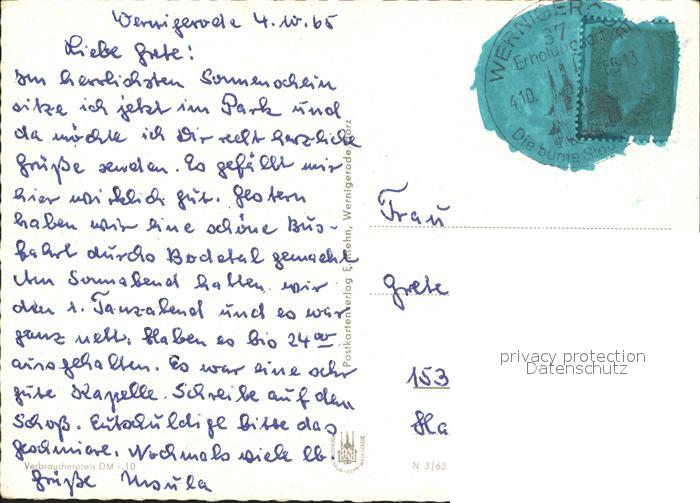 Wernigerode 4.10.65
Liebe Grete!
Im herrlichsten Sonnenschein
sitze ich jetzt im Park und
da möchte ich Dir recht herzliche
Grüße senden. Es gefällt mir
hier wirklich gut. Gestern
haben wir eine schöne Bus-
fahrt durchs Bodetal gemacht.
Am Sonnabend hatten wir
den 1. Tanzabend und es war
ganz nett. Haben es bis 24 00
ausgehalten. Es war eine sehr
gute Kapelle. Schreibe auf dem
Schoß. Entschuldige bitte das
Geschmiere. Nochmals viele lb.
Grüße
Verbraucherpreis DM -.10
Postkartenverlag E. Mehn, Wernigerode/Harz
N 3/63
WERNIGERO
37
Erholungsort
4.10. 65-13
Die bunte Sta
Frau
Grete
153
Ha
privacy protection
Datenschutz